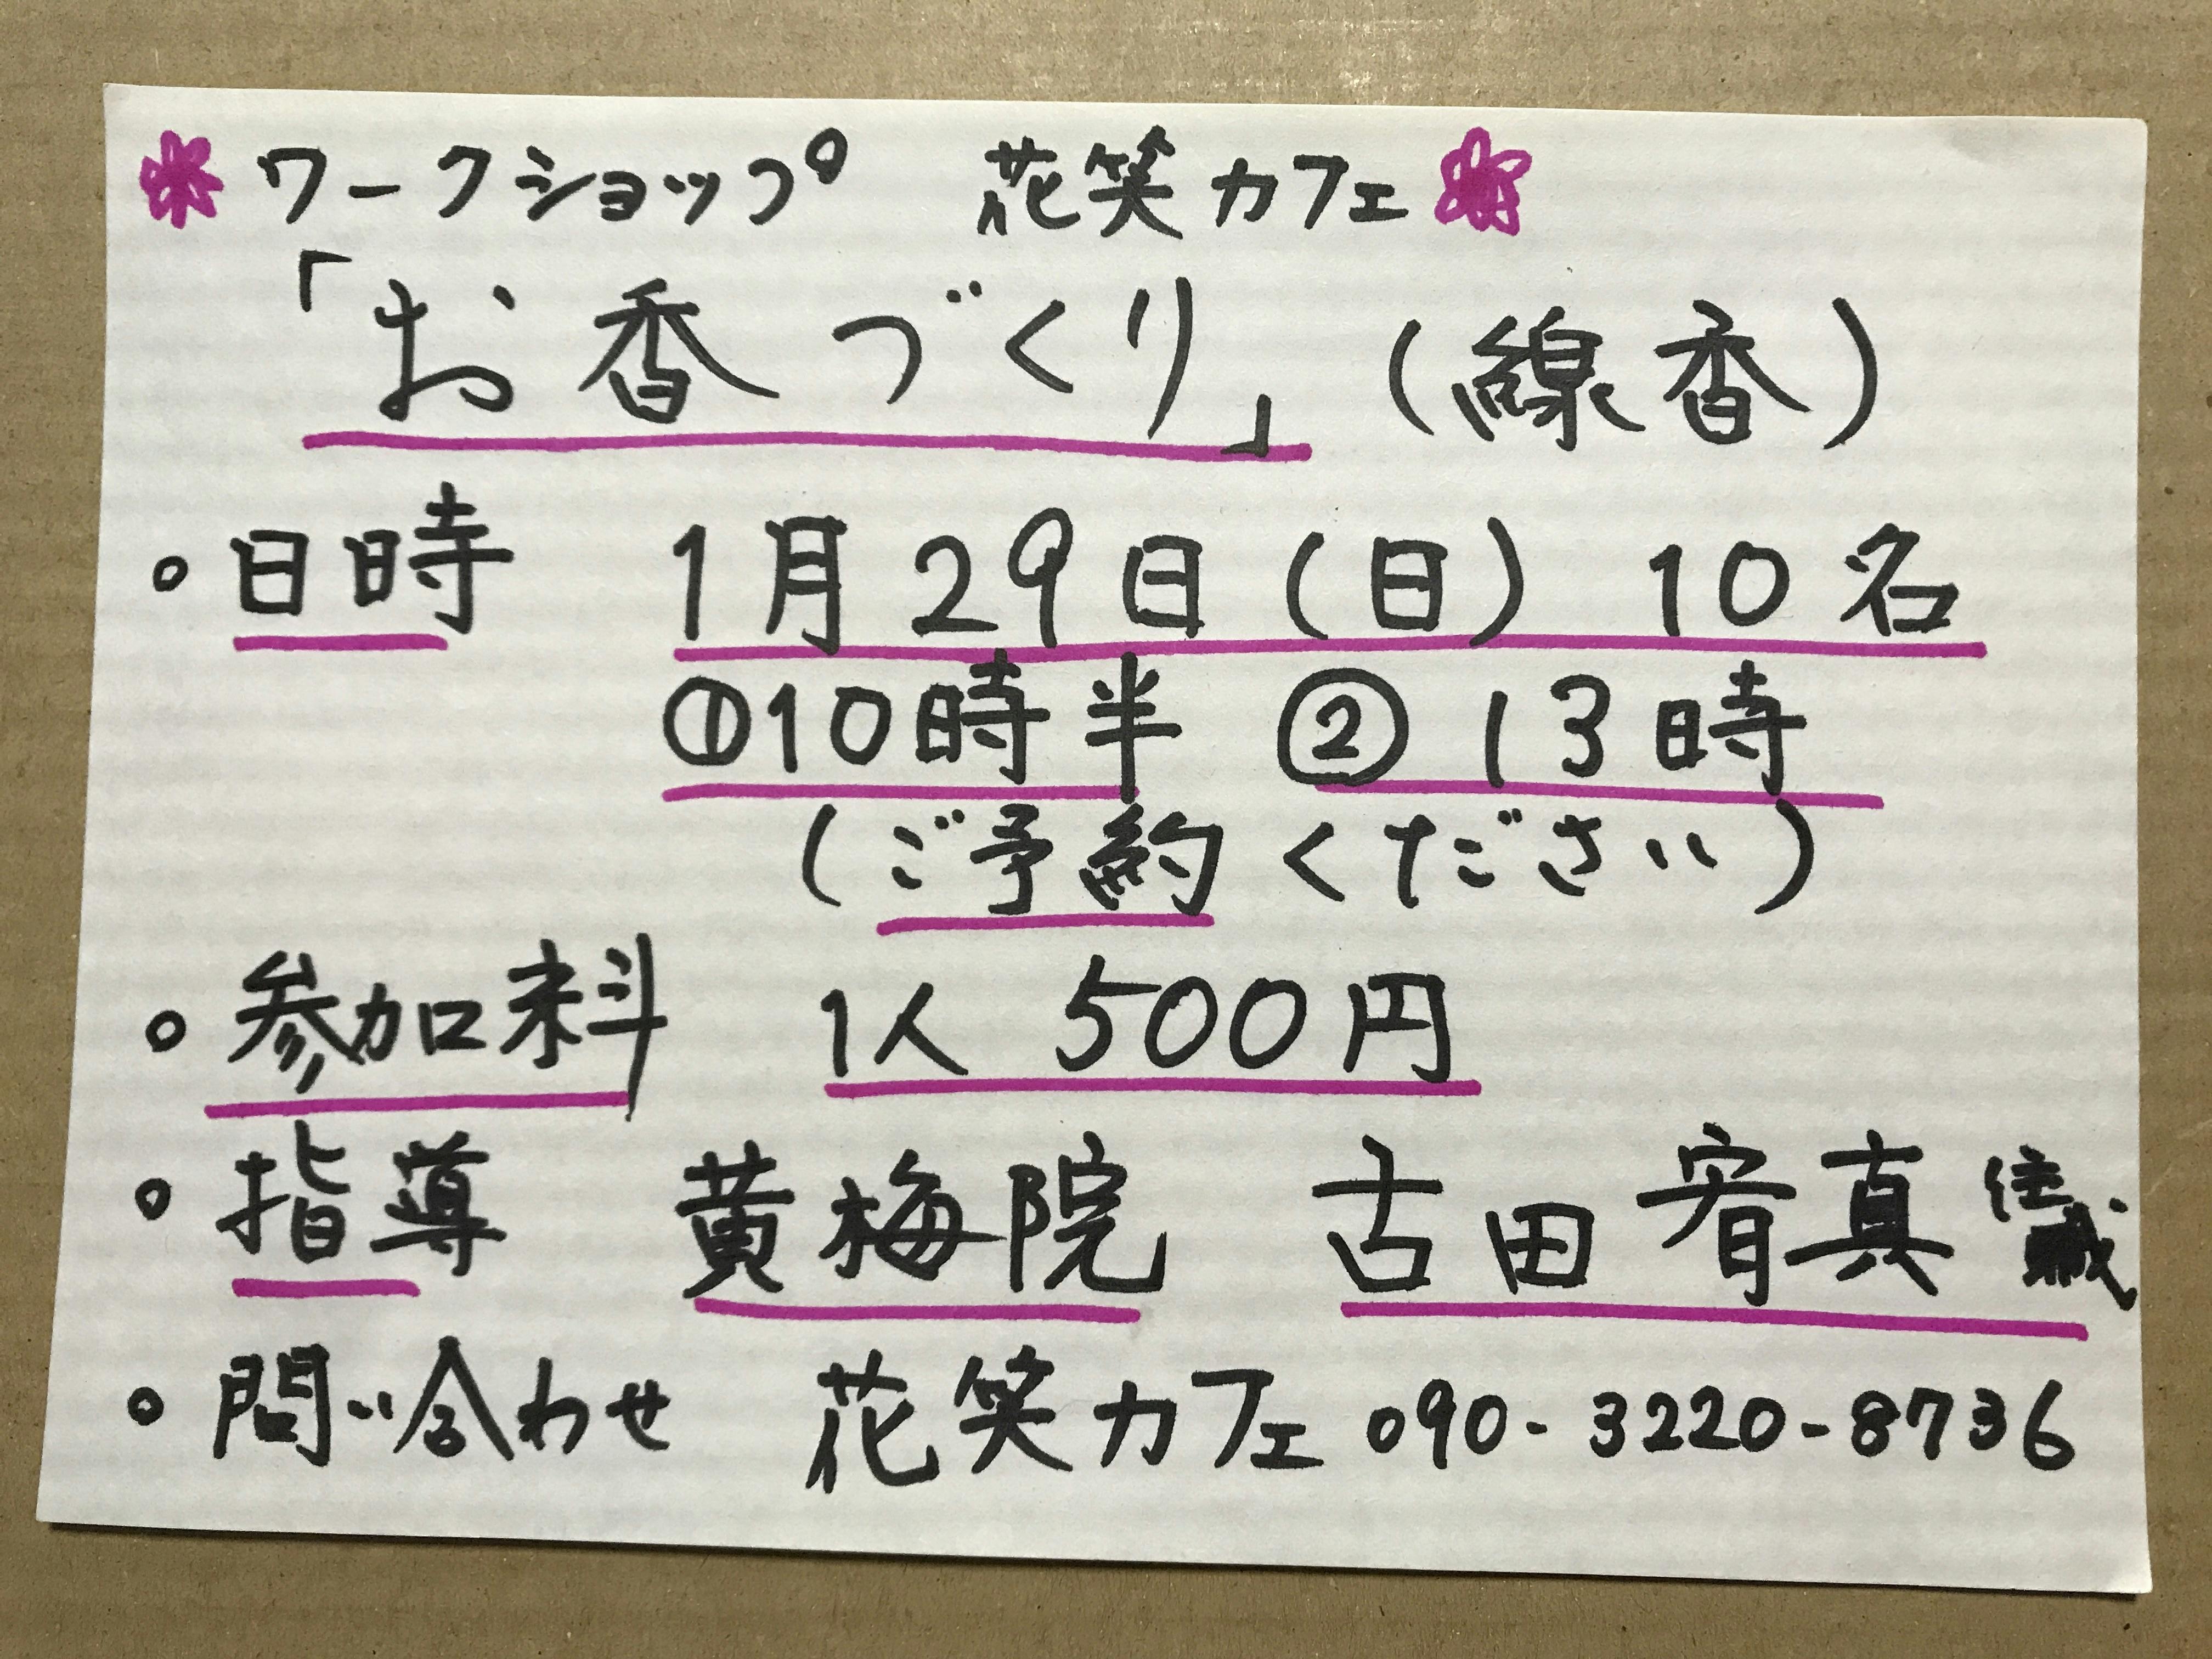 ワークショップ 花笑カフェ
「お香づくり」(線香)
。日時 1月29日(日) 10名
①10時半 ②13時
(ご予約ください)
。参加料 1人 500円
。指導 黄梅院 古田宥真 住職
。問い合わせ 花笑カフェ 090-3220-8736